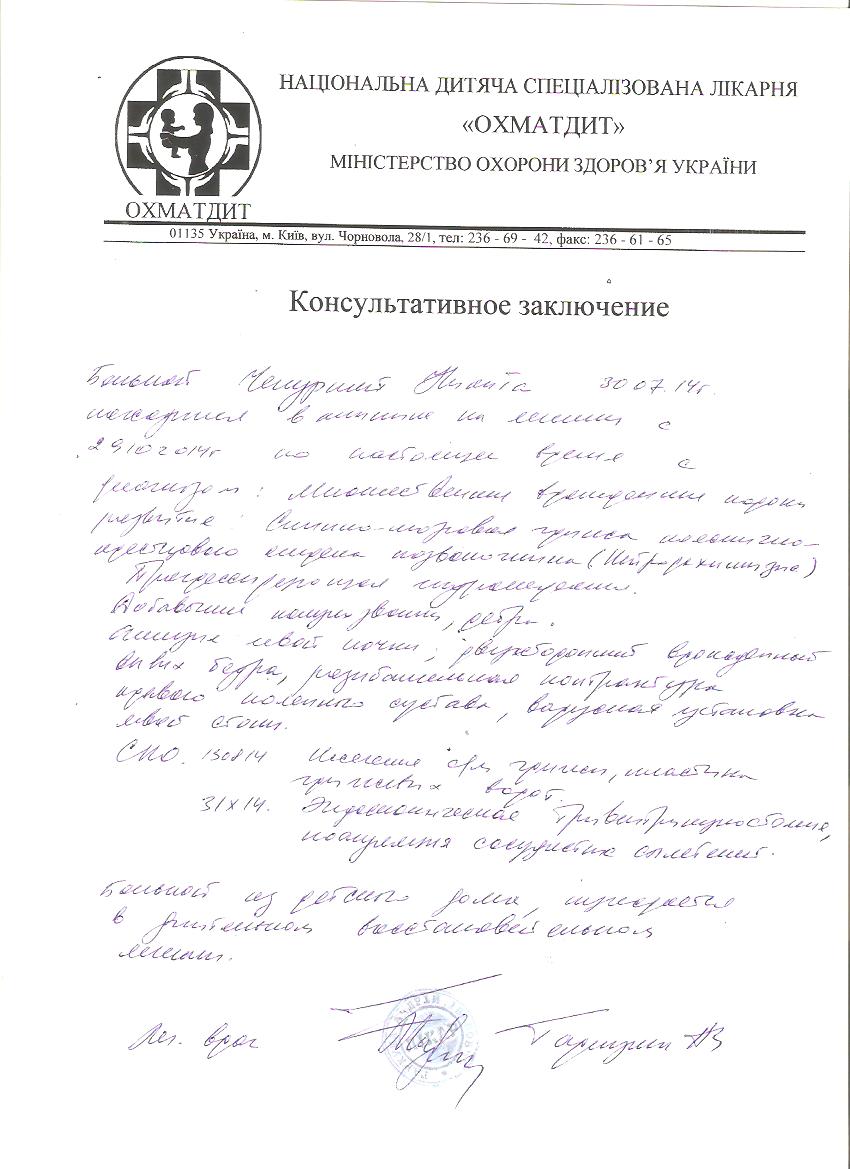 НАЦІОНАЛЬНА ДИТЯЧА СПЕЦІАЛІЗОВАНА ЛІКАРНЯ
«ОХМАТДИТ»
МІНІСТЕРСТВО ОХОРОНИ ЗДОРОВ’Я УКРАЇНИ
ОХМАТДИТ
01135 Україна, м. Київ, вул. Чорновола, 28/1, тел: 236 - 69 - 42, факс: 236 - 61 - 65
Консультативное заключение
Больной Никита 30 07.14г.
находится в клинике на лечении с
29102014г по настоящее время с
диагнозом: Множественные врожденные пороки
развития: Спинно-мозговая грыжа пояснично-
крестцового отдела позвоночника (
Прогрессирующая гидроцефалия.
Добавочные полупозвонки, ребра.
левой почки, двухсторонний врожденный
вывих бедра, разгибательная контрактура
правого коленного сустава, варусная установка
левой стопы.
130814 Иссечение с/м грыжи, пластика
грыжевых ворот.
31X14. Эндоскопическая Тривентрикулостомия,
коагуляция сосудистых сплетений.
Больной из детского дома, нуждается
в длительном восстановительном
лечении.
Леч. врач